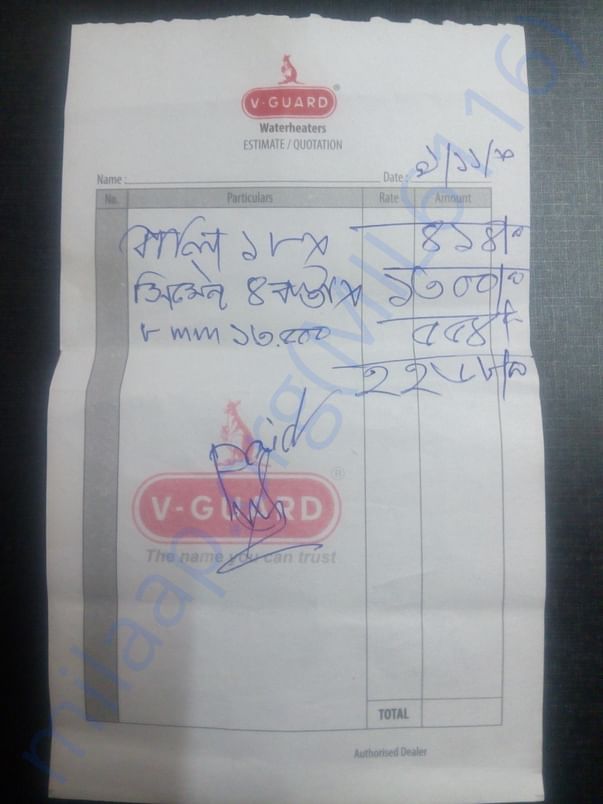 V-GUARD®
Waterheaters
ESTIMATE / QUOTATION
Name : Date :
No. Particulars Rate Amount
বালি ১৮ ৪১৪/-
৪ ১৩০০/-
৮ mm ১৩.৫০০ ৫৫৪/-
Paid
V-GUARD®
The name you can trust
TOTAL
Authorised Dealer
milaap.org(MIL 6116)